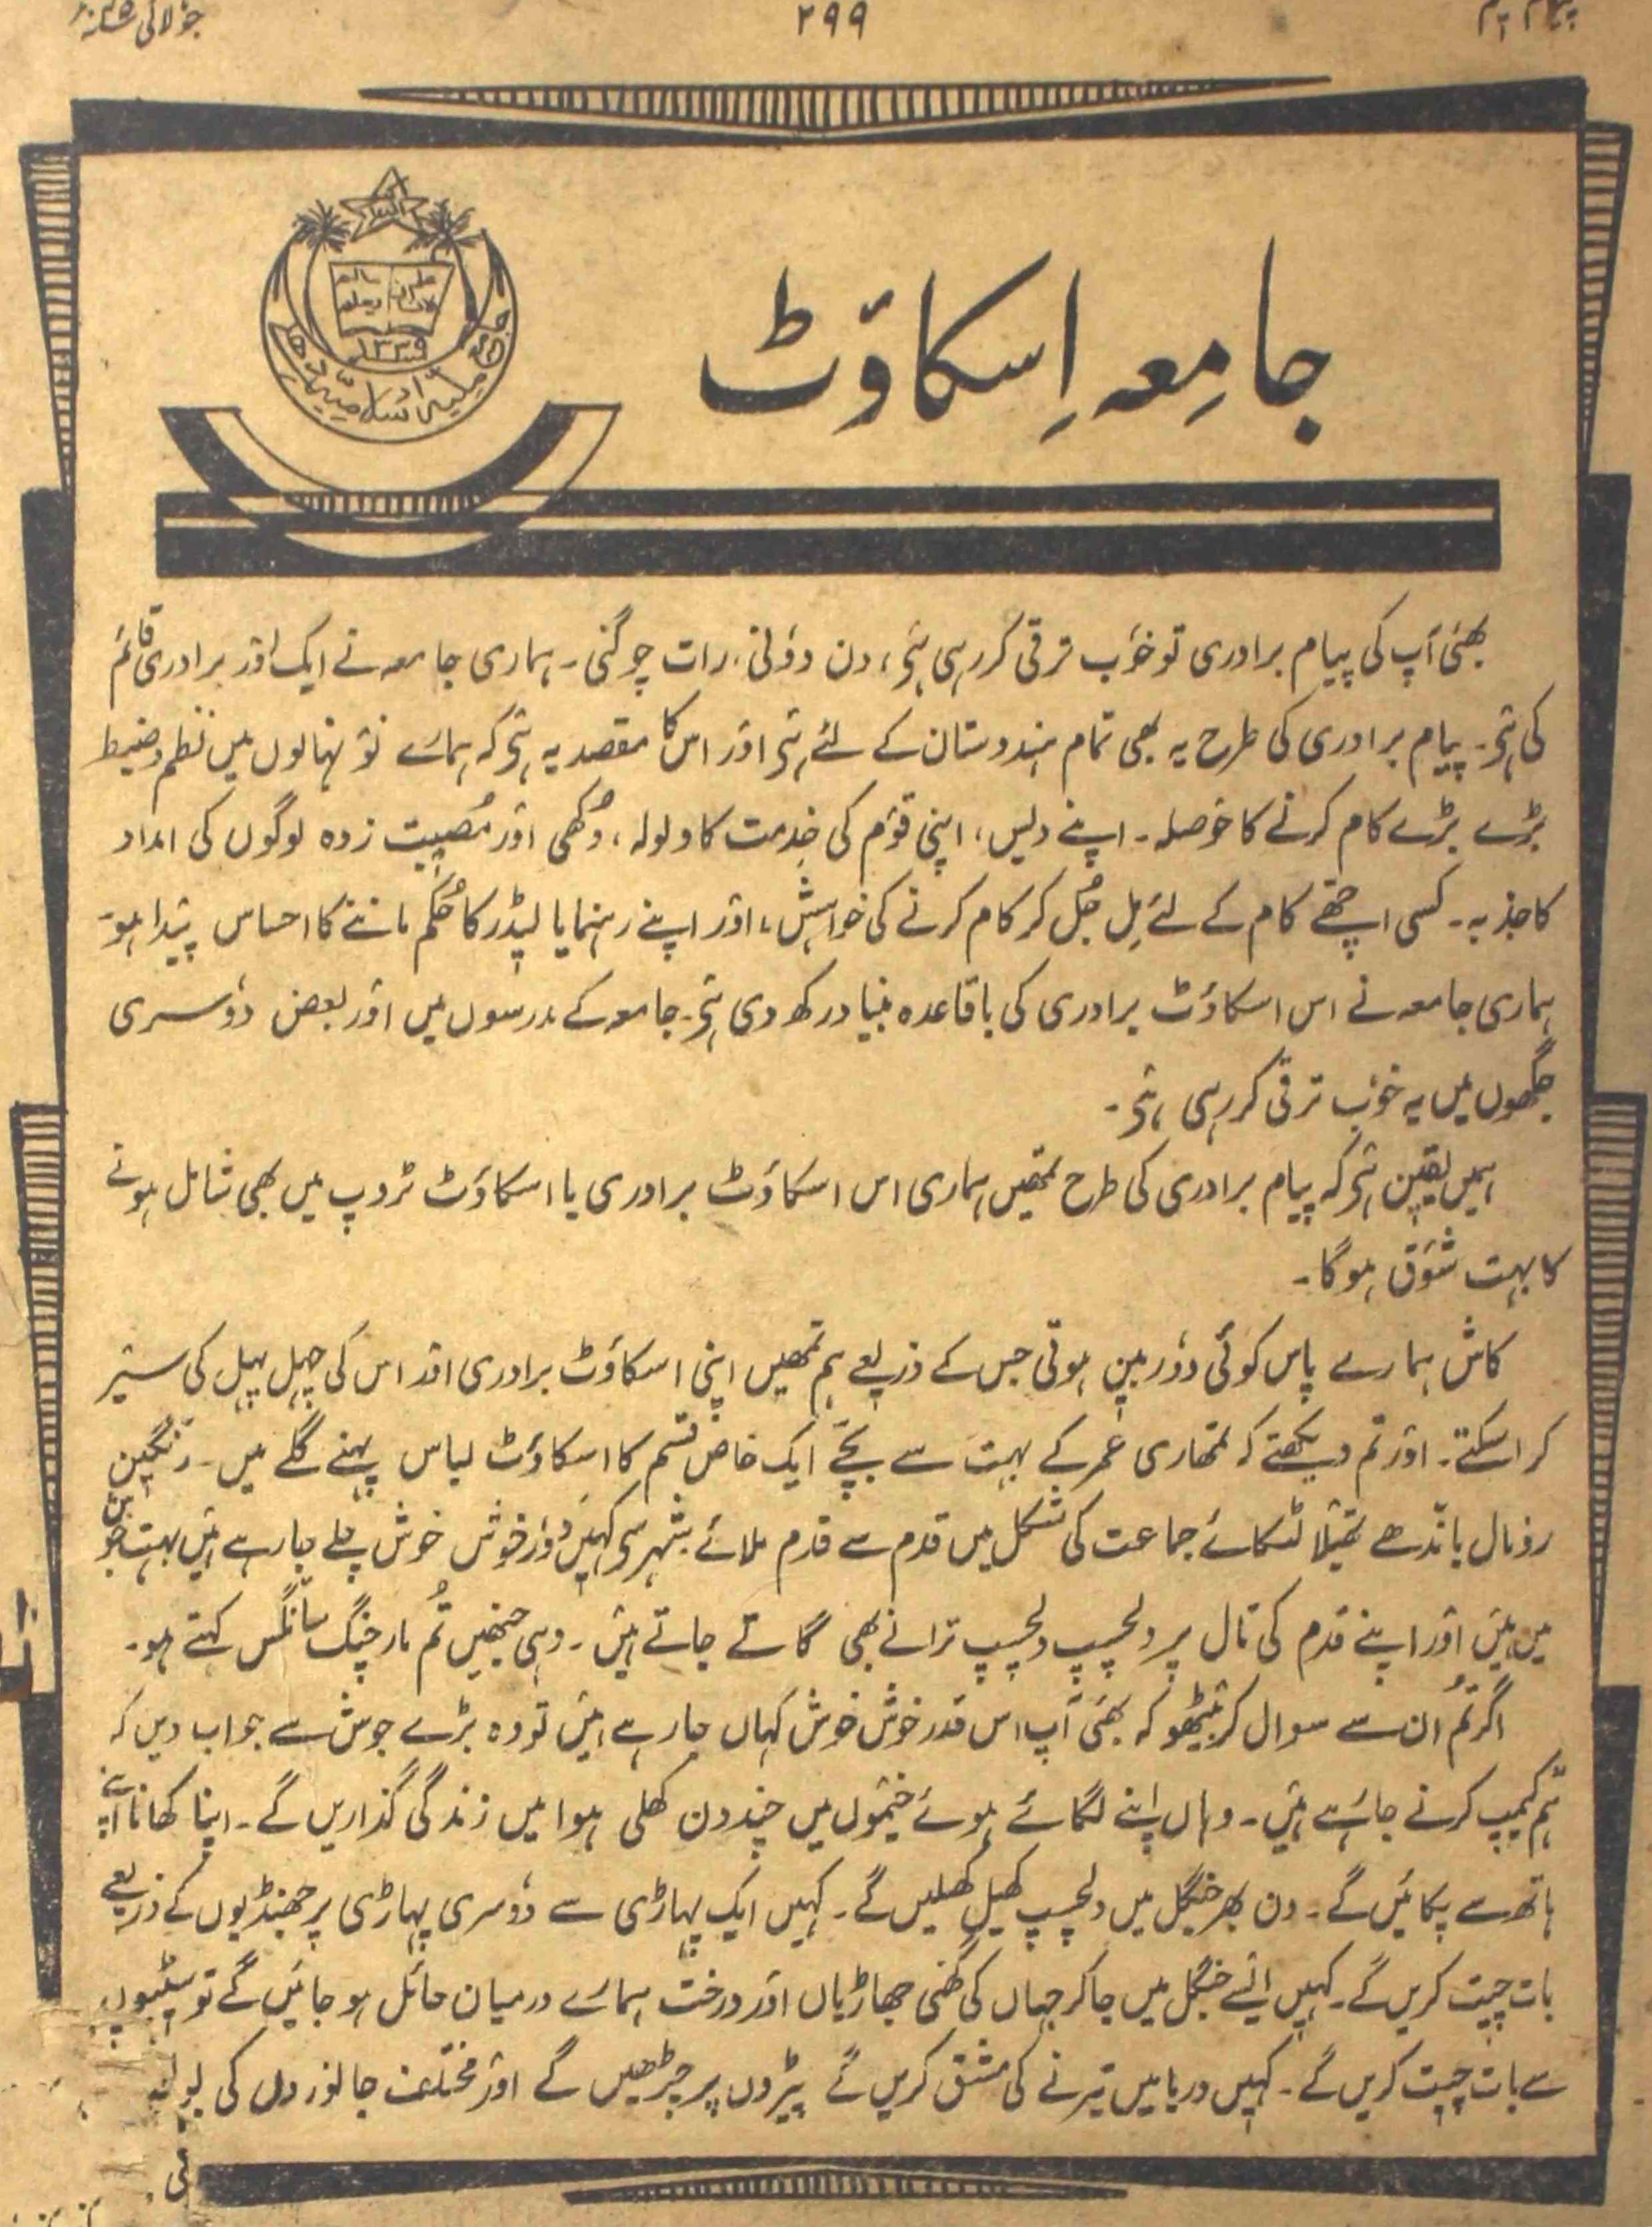 ۲۹۹
جامِعہ اِسکاؤٹ
۱۳۳۹
جامعہ ملیہ اسلامیہ
بھئی آپ کی پیام برادری تو خوٗب ترقی کر رہی ہَی، دن دوٗنی، رات چوگنی۔ ہماری جامعہ نے ایک اوَر برادری قائم
کی ہَی۔ پیام برادری کی طرح یہ بھی تمام ہندوستان کے لئے ہَی اوَر اس کا مقصد یہ ہَی کہ ہمارے نوَ نہالوں میں نظم و ضبط
بڑے بڑے کام کرنے کا حوَصلہ۔ اپنے دیس، اپنی قوَم کی خِدمت کا ولولہ، دُکھی اوَر مُصیبت زدہ لوگوں کی امداد
کا جذبہ۔ کسی اچھّے کام کے لئے مِل جُل کر کام کرنے کی خواہش، اوَر اپنے رہنما یا لیڈر کا حُکم ماننے کا احساس پَیدا ہو۔
ہماری جامعہ نے اس اسکاؤٹ برادری کی باقاعدہ بنیاد رکھ دی ہَی۔ جامعہ کے مدرسوں میں اوَر بعض دوٗسری
جگھوں میں یہ خوٗب ترقی کر رہی ہَی۔
ہمیں یقین ہَی کہ پیام برادری کی طرح تمھیں ہماری اس اسکاؤٹ برادری یا اسکاؤٹ ٹروپ میں بھی شامل ہونے
کا بہت شوَق ہوگا۔
کاش ہمارے پاس کوئی دوٗربین ہوتی جس کے ذریعے ہم تمھیں اپنی اسکاؤٹ برادری اور اس کی چہل پہل کی سَیر
کرا سکتے۔ اوَر تم دیکھتے کہ تمھاری عُمر کے بہت سے بچّے ایک خاص قسم کا اسکاؤٹ لباس پہنے گلے میں۔ رنگین
روٗمال باندھے تھیلا لٹکائے جماعت کی شکل میں قدم سے قدم ملائے شہر سی کہیں دوٗر خوش خوش چلے جا رہے ہَیں بہت جوبن
میں ہَیں اوَر اپنے قدم کی تال پر دلچسپ دلچسپ ترانے بھی گاتے جاتے ہَیں۔ وہی جنھیں تُم مارچنگ سانگس کہتے ہو۔
اگر تُم اُن سے سوال کر بَیٹھو کہ بھئی آپ اس قدر خوش خوش کہاں جا رہے ہَیں تو وہ بڑے جوش سے جواب دیں کہ
ہم کَیمپ کرنے جا رہے ہَیں۔ وہاں اپنے لگائے ہوئے خیموں میں چند دن کھلی ہوا میں زندگی گذاریں گے۔ اپنا کھانا اپنے
ہاتھ سے پکائیں گے۔ دن بھر جنگل میں دلچسپ کھیل کھیلیں گے۔ کہیں ایک پہاڑی سے دوٗسری پہاڑی پر جھنڈیوں کے ذریعے
بات چیت کریں گے۔ کہیں ایسے جنگل میں جا کر جہاں کی گھنی جھاڑیاں اوَر درخت ہمارے درمیان حائل ہو جائیں گے تو سیٹیوں
سے بات چیت کریں گے۔ کہیں دریا میں تیرنے کی مشق کریں گے پیڑوں پر چڑھیں گے اوَر مختلف جانوَروں کی